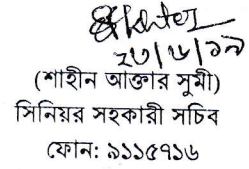 ২৩/৬/১৯
(শাহীন আক্তার সুমী)
সিনিয়র সহকারী সচিব
ফোন: ৯১১৫৭১৬